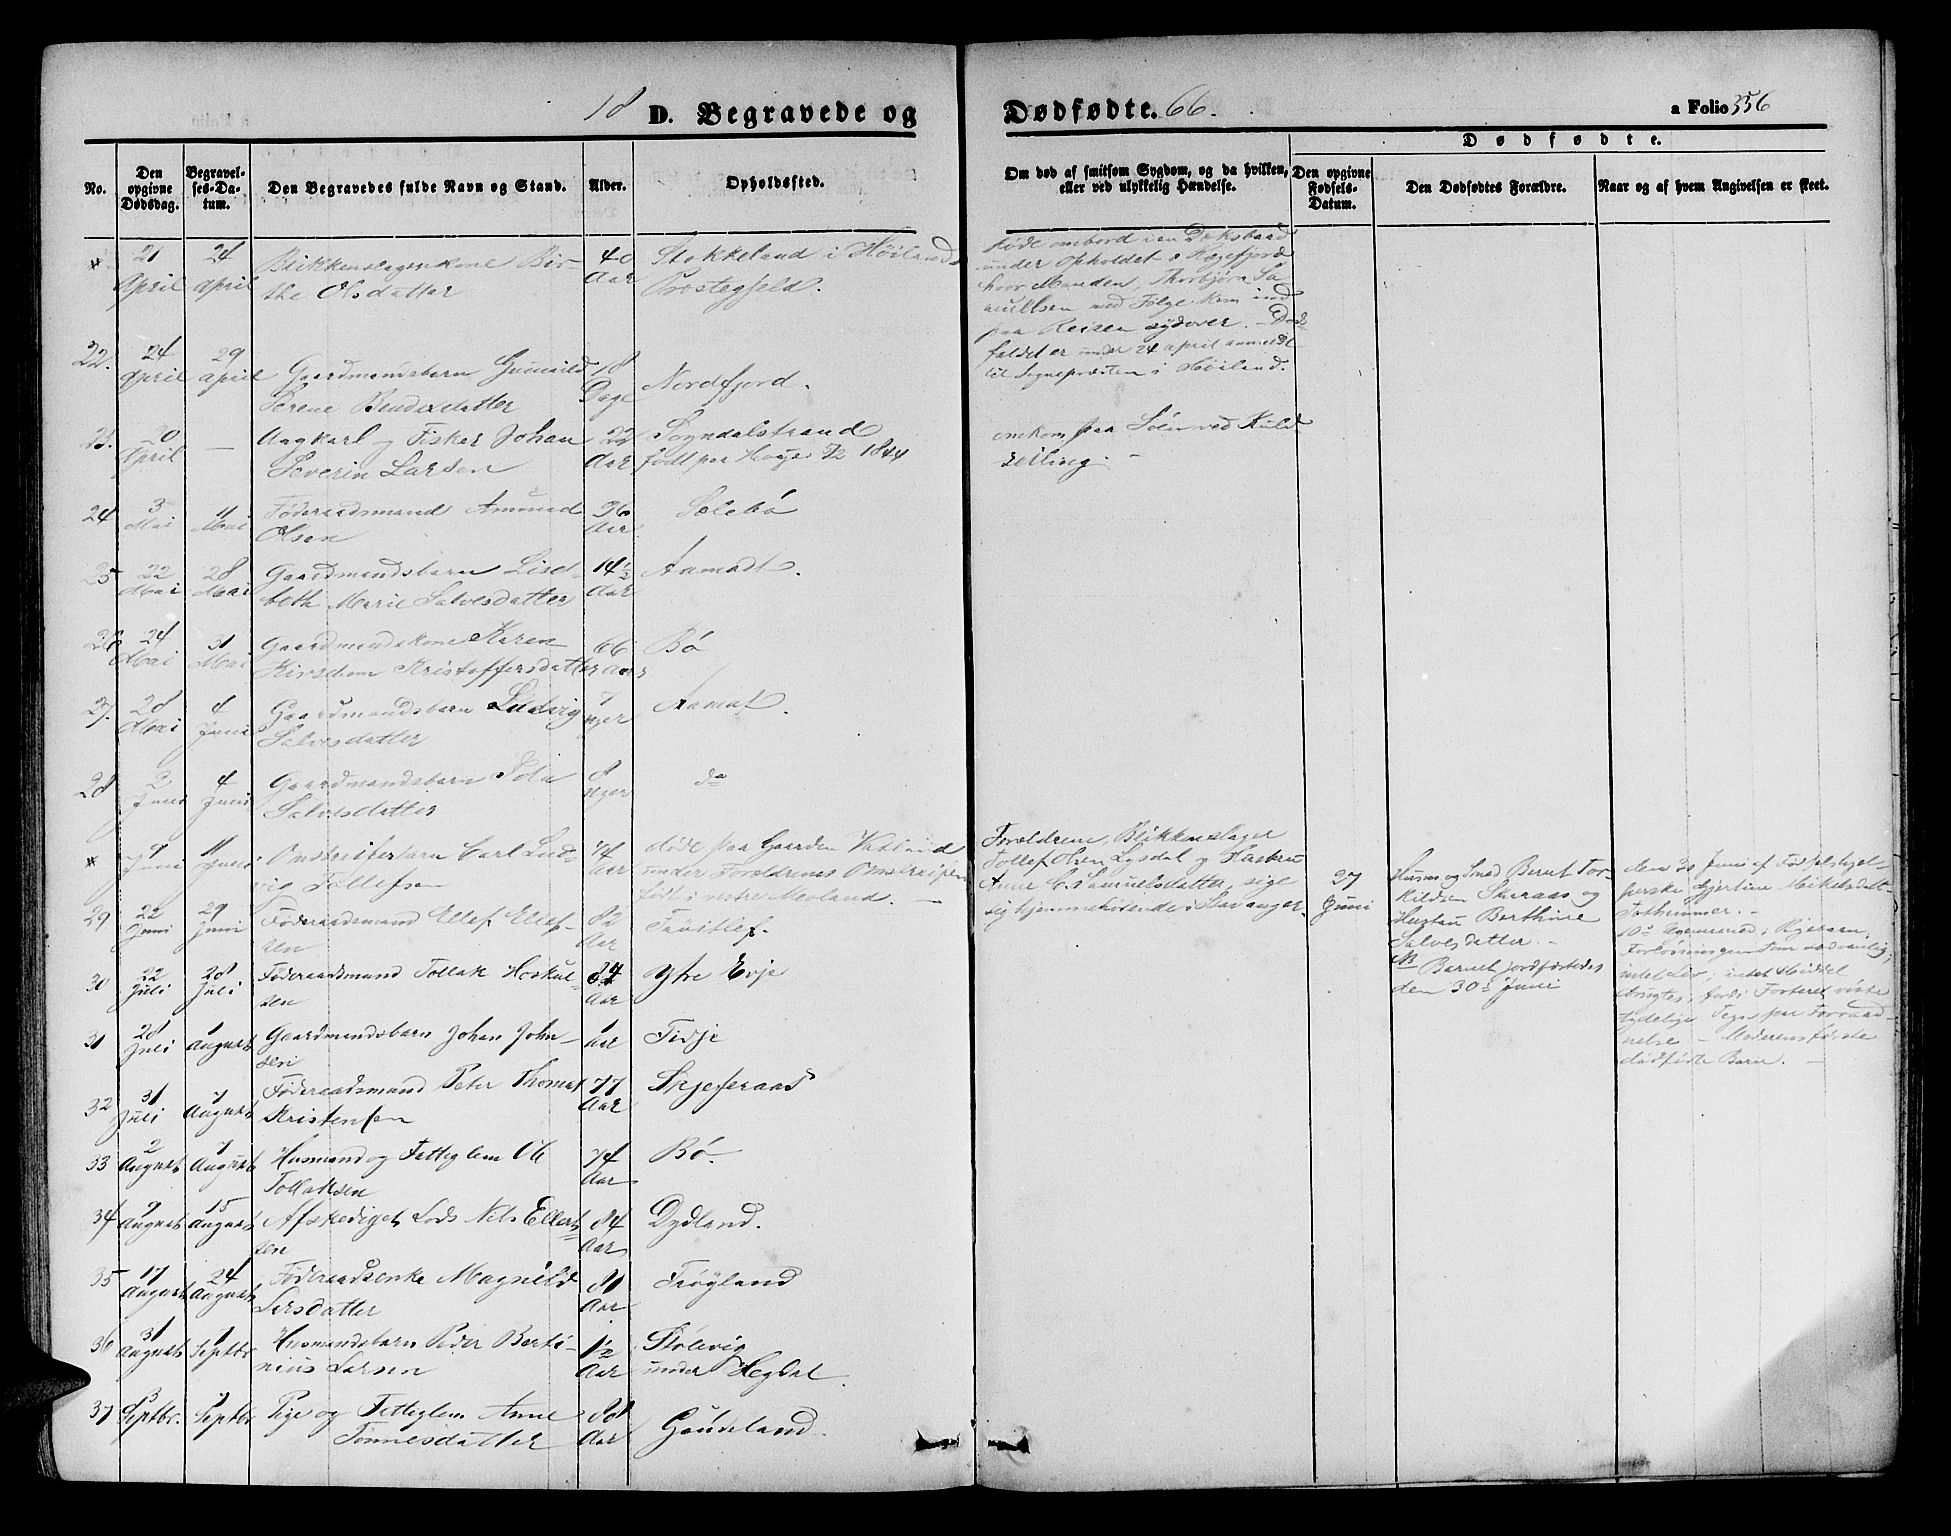 18 D. Begravede og Dødfødte. 66.
a Folio 356
No.
Den opgivne Dødsdag.
Begravelses-Datum.
Den Begravedes fulde Navn og Stand.
Alder.
Opholdssted.
Om død af smitsom Sygdom, og da hvilken, eller ved ulykkelig Hændelse.
Dødfødte.
Den opgivne Fødsels-Datum.
Den Dødfødtes Forældre.
Naar og af hvem Angivelsen er skeet.
* 21 April 24 April
Blikkenslagerkone Bir-
the Olsdatter
40 Aar
Stokkeland i Høilands
Præstegjeld.
døde ombord i en Dæksbaad
under Opholdet i Rægefjord
hvor Manden, Thorbjørn Sa-
muelsen med Følge kom ind
paa Reisen sydover. - Døds-
faldet er under 24 april anmeldt
til Sognepræsten i Høiland.
22. 24 April 29 April
Gaardmandsbarn Gunild
Serene Bendixdatter
18 Dage
Nordfjord.
23. 20 April —
Ungkarl og Fisker Johan
Severin Larsen
22 Aar
Sogndalstrand
født paa Hauge 1844
omkom paa Søen ved Kuld-
seiling. —
24 5 Mai 11 Mai
Føderaadsmand Amund
Olsen
96 Aar
Selebø
25 22 Mai 28 Mai
Gaardmandsbarn Lisa-
beth Marie Salvesdatter
14½ Aar
Aamodt.
26 24 Mai 31 Mai
Gaardmandskone Karen
Kristoffersdatter
66 Aar
Bø
27. 28 Mai 4 Juni
Gaardmandsbarn Ludvig
Salvesdatter
7 Uger
Aamot.
28 2 Juni 4 Juni
Gaardmandsbarn Ida
Salvesdatter
8 Uger
do
* 9 Juni 11 Juni
Omstreiferbarn Carl Lud-
vig Tollefsen
Aar
døde paa Gaarden Vatland
under Forældrenes Omstreifen
født i vestre Moland. —
Forældrene, Blikkenslager
Tollef Olsen Lysdal og Hustru
Anne C. Samuelsdatter, sige
sig hjemmehørende i Stavanger.
27 Juni
Husm og Smed Bernt Tor-
kildsen Skeraas og
Hustru Berthine
Salvesdatter. —
NB Barnet jordfæstedes
den 30 Juni
den 30 Juni af Fødselshjel-
perske Gjertine Mikelsdat-
ter
Forløsningen som sædvanlig,
intet Liv; intet Middel
brugtes, fordi Fosteret viste
tydelige Tegn paa Forraad-
nelse — Moderens første
dødfødte Barn. —
29 22 Juni 29 Juni
Føderaadsmand Ellef Ellef-
sen
82 Aar
30 22 Juli 28 Juli
Føderaadsmand Tollak Hoskul-
sen
84 Aar
Ytre Evje
31 28 Juli 1 August
Gaardmandsbarn Johan John-
sen
1 Aar
Tidje
32 31 Juli 7 August
Føderaadsmand Peter Thomas
Kristensen
77 Aar
Skjeferaas
33 2 August 7 August
Husmand og Fattiglem Ole
Tollaksen
74 Aar
Bø.
34 9 August 15 August
Afskediget Lods Nils Ellert-
sen
84 Aar
Dydland.
35 17 August 24 August
Føderaadsenke Magnild
Larsdatter
81 Aar
Frøyland
36 31 August 7 Septbr
Husmandsbarn Peder Berto-
nius Larsen
1½ Aar
Stølevig
under Hegdal.
37 3 Septbr. 7 Septbr
Pige og Fattiglem Anne
Tønnesdatter
88 Aar
Gaudeland.